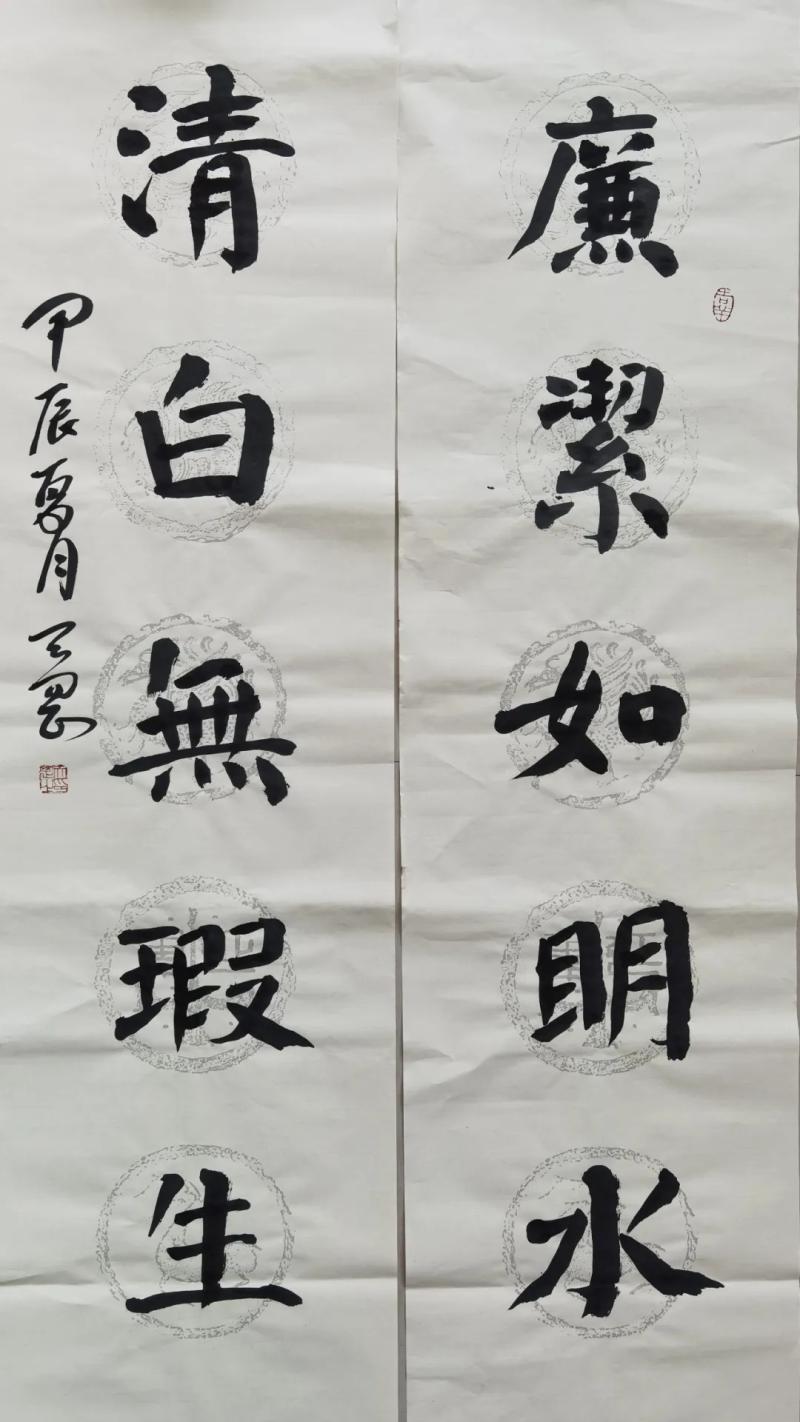 廉潔如明水
清白無瑕生
甲辰夏月